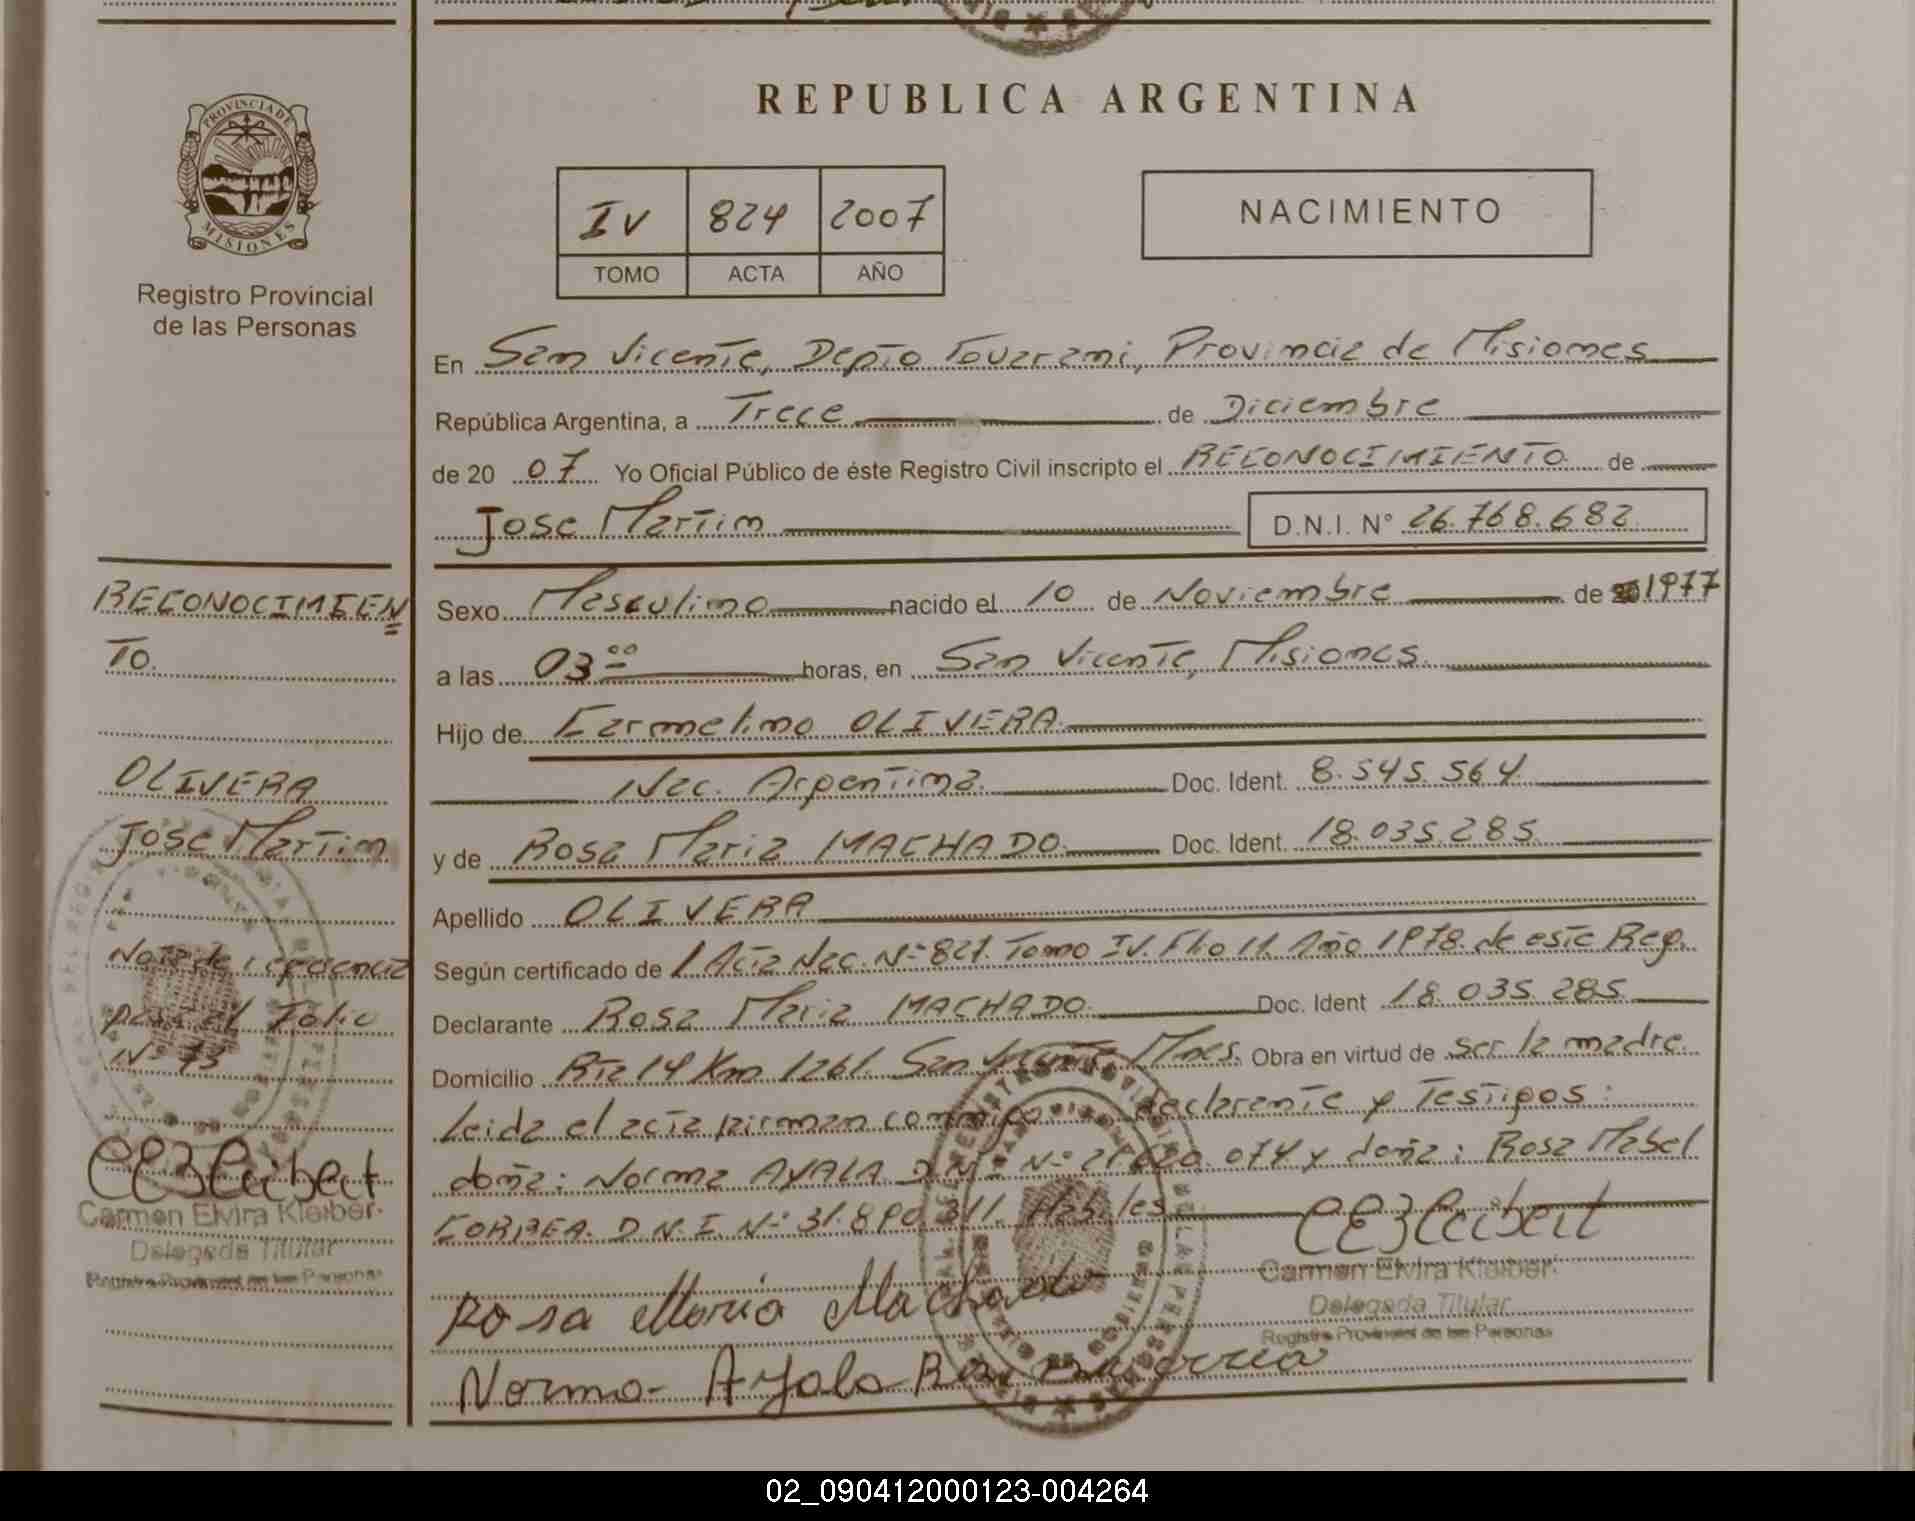 REPUBLICA ARGENTINA
PROVINCIA DE
MISIONES
Registro Provincial
de las Personas
IV 824 2007
TOMO ACTA AÑO
NACIMIENTO
En San Vicente, Depto Guarani, Provincia de Misiones
República Argentina, a Trece de Diciembre
de 20 07 Yo Oficial Público de éste Registro Civil inscripto el RECONOCIMIENTO de
Jose Martin D.N.I. N° 26.768.682
RECONOCIMIEN
TO.
OLIVERA
Jose Martin
Nota de
para el Folio
N° 73
Carmen Elvira Kleiber
Delegada Titular
Registro Provincial de las Personas
Sexo Masculino nacido el 10 de Noviembre de 1977
a las 03 00 horas, en San Vicente, Misiones.
Hijo de Carmelino OLIVERA
Nac. Argentina. Doc. Ident. 8.545.564
y de Rosa Maria MACHADO Doc. Ident. 18.035.285
Apellido OLIVERA
Según certificado de Acta Nac. N° 827. Tomo IV. Flio 11. Año 1978. de este Reg.
Declarante Rosa Maria MACHADO Doc. Ident 18.035.285
Domicilio Rta 14 Km 1261. San Vicente Mnes. Obra en virtud de ser la madre.
Leida el acta firman conmigo declarante y Testigos:
doña: Norma AYALA D.N.I. N° 074 y doña: Rosa Mabel
CORREA. D.N.I. N° 31.890.311. Habiles
Carmen Elvira Kleiber
Delegada Titular
Registro Provincial de las Personas
Rosa Maria Machado
Norma Ayala
02_090412000123-004264